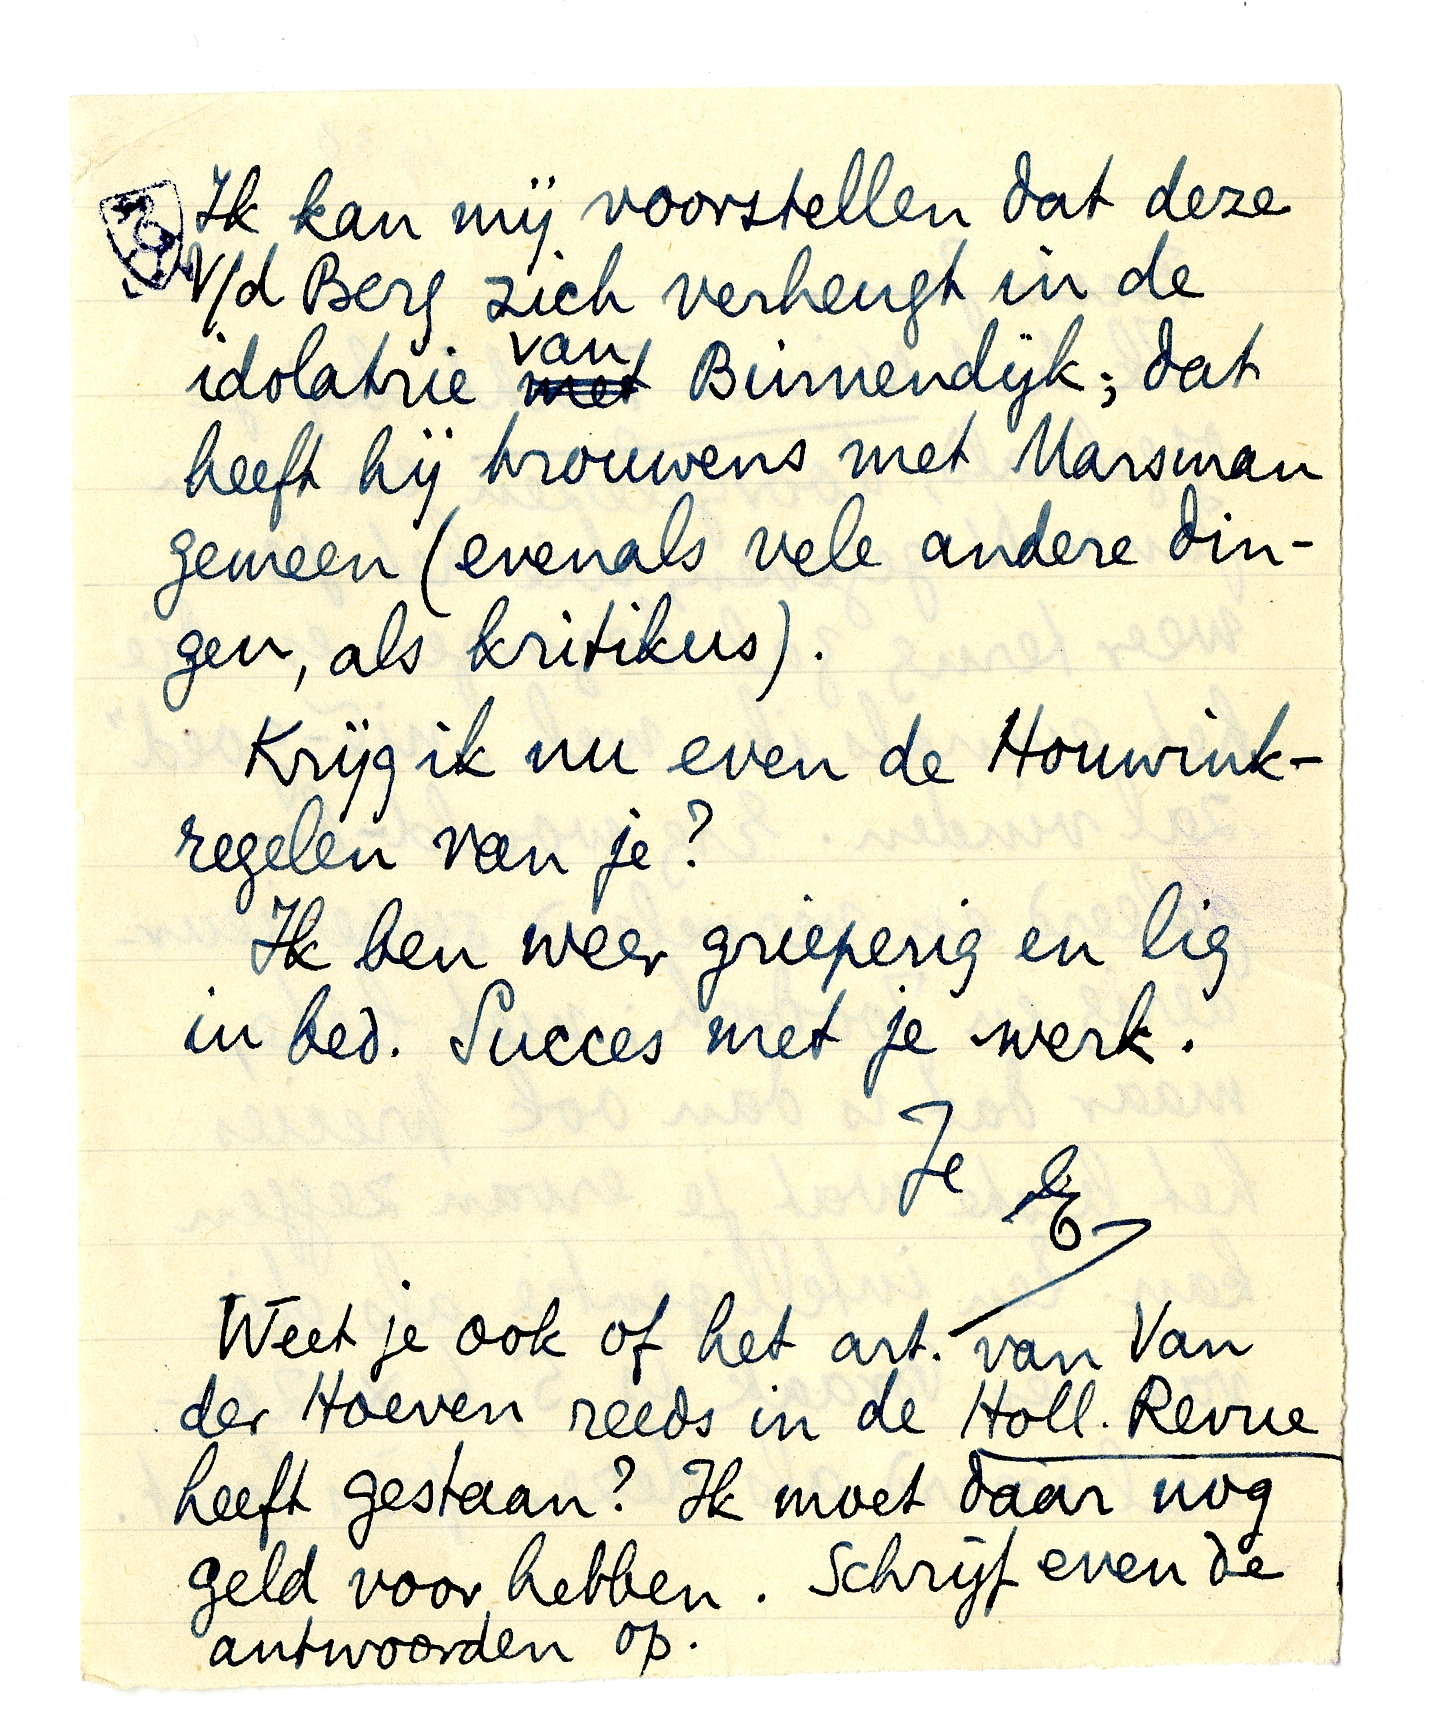 Ik kan mij voorstellen dat deze
V/d Berg zich verheugt in de
idolatrie van Binnendijk; dat
met
heeft hij trouwens met Marsman
gemeen (evenals vele andere din-
gen, als kritikus).
Krijg ik nu even de Houwink-
regelen van je?
Ik ben weer grieperig en lig
in bed. Succes met je werk.
Je E
Weet je ook of het art. van Van
der Hoeven reeds in de Holl. Revue
heeft gestaan? Ik moet daar nog
geld voor hebben. Schrijf even de
antwoorden op.